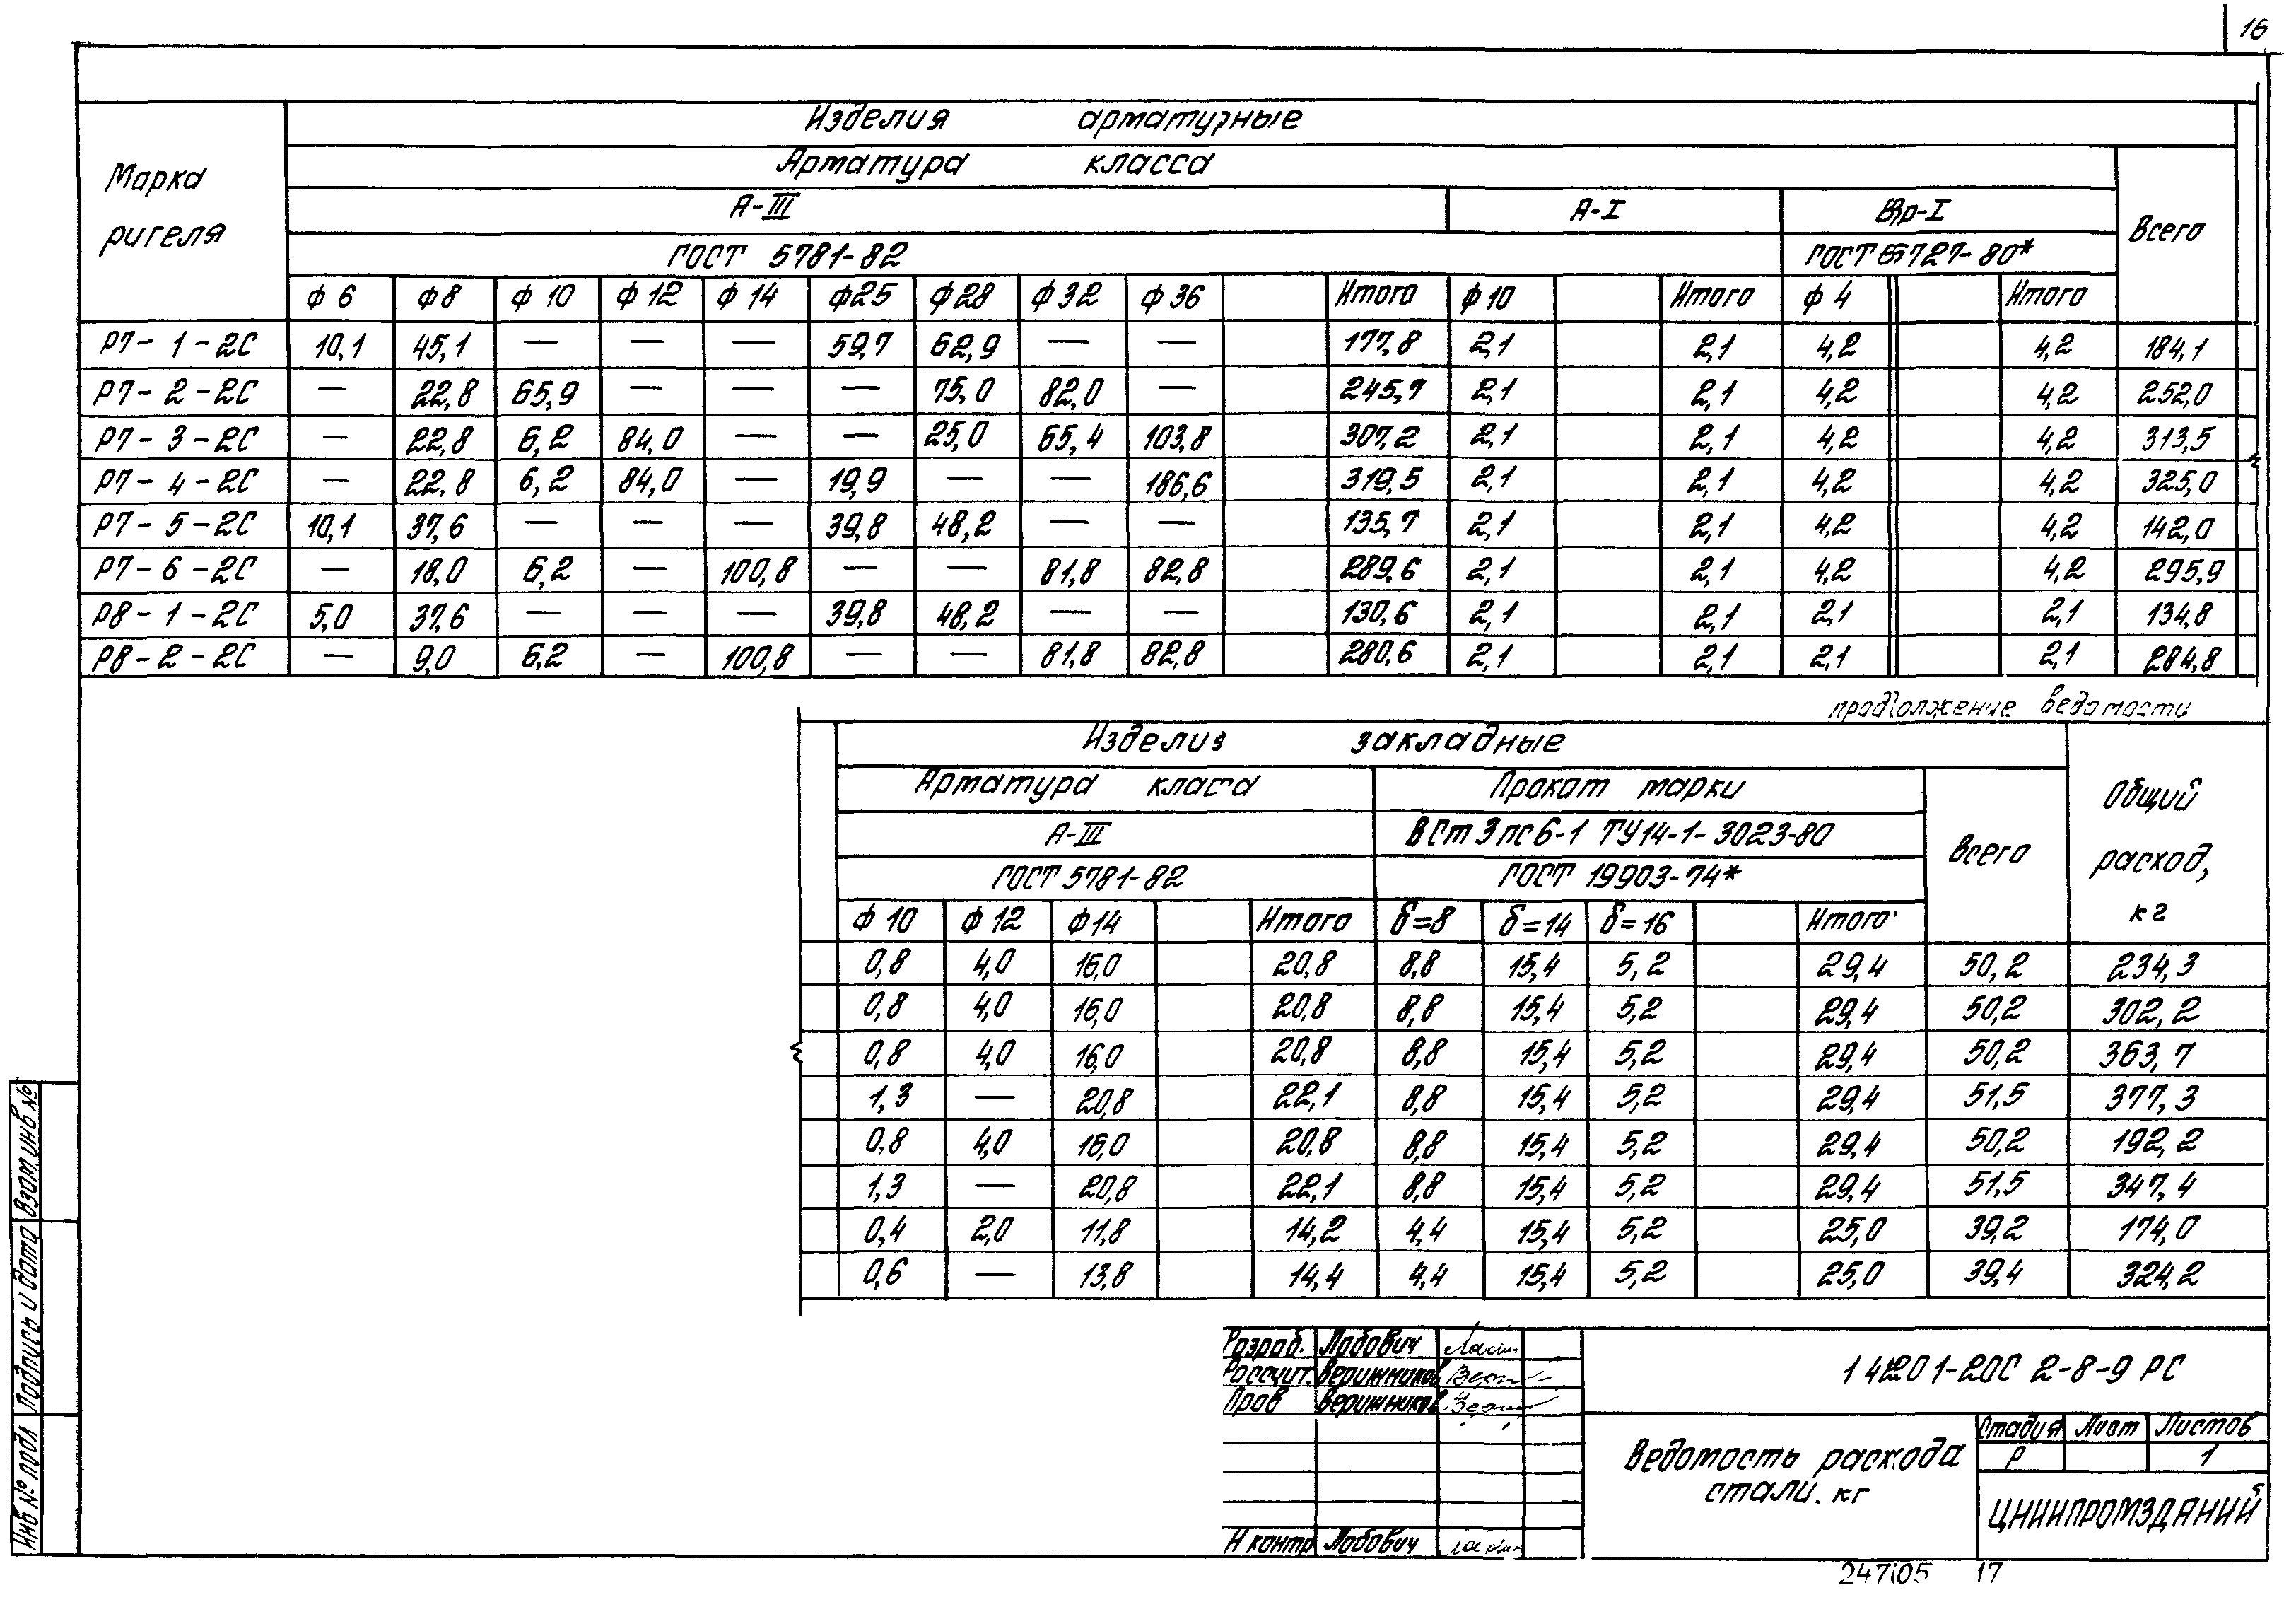 16
Изделия арматурные
Марка ригеля
Арматура класса
Всего
А-III А-I Вр-I
ГОСТ 5781-82 ГОСТ 6727-80*
ф 6 ф8 ф 10 ф 12 ф 14 ф25 ф28 ф32 ф36 Итого ф10 Итого ф 4 Итого
Р7-1-2С 10,1 45,1 — — — 59,7 62,9 — — 177,8 2,1 2,1 4,2 4,2 184,1
Р7-2-2С — 22,8 65,9 — — — 75,0 82,0 — 245,7 2,1 2,1 4,2 4,2 252,0
Р7-3-2С — 22,8 6,2 84,0 — — 25,0 65,4 103,8 307,2 2,1 2,1 4,2 4,2 313,5
Р7-4-2С — 22,8 6,2 84,0 — 19,9 — — 186,6 319,5 2,1 2,1 4,2 4,2 325,0
Р7-5-2С 10,1 37,6 — — — 39,8 48,2 — — 135,7 2,1 2,1 4,2 4,2 142,0
Р7-6-2С — 18,0 6,2 — 100,8 — — 81,8 82,8 289,6 2,1 2,1 4,2 4,2 295,9
Р8-1-2С 5,0 37,6 — — — 39,8 48,2 — — 130,6 2,1 2,1 2,1 2,1 134,8
Р8-2-2С — 9,0 6,2 — 100,8 — — 81,8 82,8 280,6 2,1 2,1 2,1 2,1 284,8
продолжение ведомости
Изделия закладные
Общий расход, кг
Арматура класса Прокат марки
Всего
А-III ВСт3пс6-1 ТУ14-1-3023-80
ГОСТ 5781-82 ГОСТ 19903-74*
ф 10 ф 12 ф14 Итого δ=8 δ=14 δ=16 Итого
0,8 4,0 16,0 20,8 8,8 15,4 5,2 29,4 50,2 234,3
0,8 4,0 16,0 20,8 8,8 15,4 5,2 29,4 50,2 302,2
0,8 4,0 16,0 20,8 8,8 15,4 5,2 29,4 50,2 363,7
1,3 — 20,8 22,1 8,8 15,4 5,2 29,4 51,5 377,3
0,8 4,0 16,0 20,8 8,8 15,4 5,2 29,4 50,2 192,2
1,3 — 20,8 22,1 8,8 15,4 5,2 29,4 51,5 347,4
0,4 2,0 11,8 14,2 4,4 15,4 5,2 25,0 39,2 174,0
0,6 — 13,8 14,4 4,4 15,4 5,2 25,0 39,4 324,2
Разраб. Лобович
Рассчит. Верижников
Пров Верижников
Н контр Лобович
1 4201-20С 2-8-9 РС
Ведомость расхода
стали. кг
Стадия Лист Листов
Р 1
ЦНИИПРОМЗДАНИЙ
24705 17
Инв № подл Подпись и дата Взам инв №